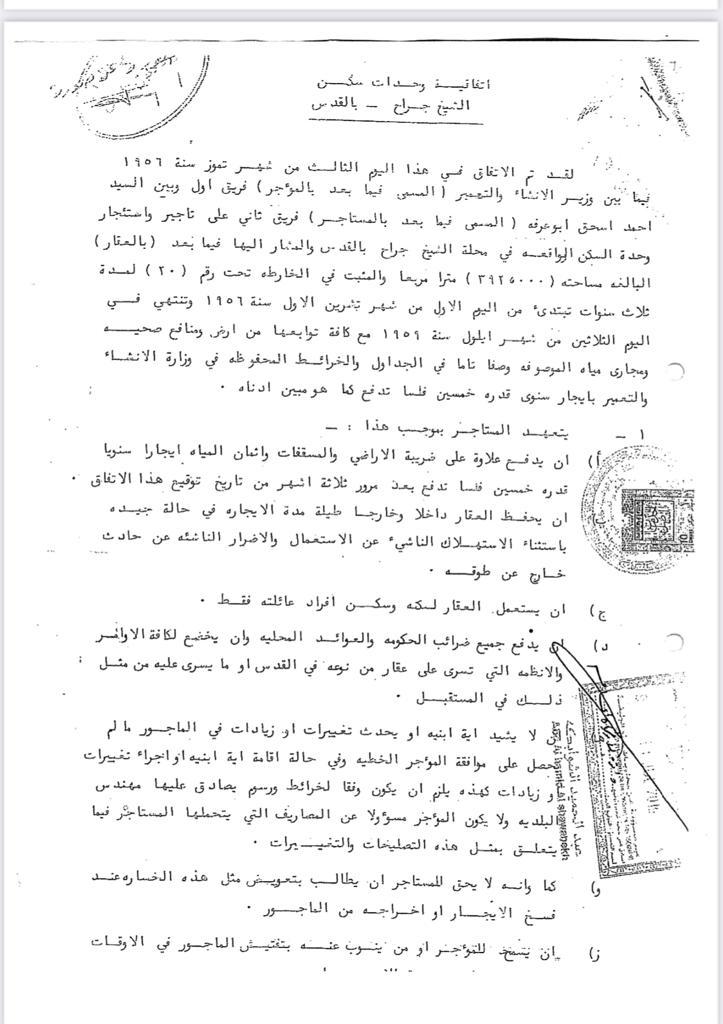 اتفاقية وحدات سكن
الشيخ جراح - بالقدس
لقد تم الاتفاق في هذا اليوم الثالث من شهر تموز سنة ١٩٥٦
فيما بين وزير الانشاء والتعمير ( المسمى فيما بعد بالمؤجر ) فريق اول وبين السيد
احمد اسحق ابوعرفه ( المسمى فيما بعد بالمستاجر ) فريق ثاني على تاجير واستئجار
وحدة السكن الواقعه في محلة الشيخ جراح بالقدس والمشار اليها فيما بعد ( بالعقار )
البالغه مساحته ( ٣٩٢٥٠٠٠ ) مترا مربعا والمثبت في الخارطه تحت رقم ( ٢٠ ) لمدة
ثلاث سنوات تبتدئ من اليوم الاول من شهر تشرين الاول سنة ١٩٥٦ وتنتهي في
اليوم الثلاثين من شهر ايلول سنة ١٩٥٩ مع كافة توابعها من ارض ومنافع صحيه
ومجارى مياه الموصوفه وصفا تاما في الجداول والخرائط المحفوظه في وزارة الانشاء
والتعمير بايجار سنوى قدره خمسين فلسا تدفع كما هو مبين ادناه .
١ - يتعهد المستاجر بموجب هذا : -
أ) ان يدفع علاوة على ضريبة الاراضي والمسقفات واثمان المياه ايجارا سنويا
قدره خمسين فلسا تدفع بعد مرور ثلاثة اشهر من تاريخ توقيع هذا الاتفاق .
ان يحفظ العقار داخلا وخارجا طيلة مدة الايجاره في حالة جيده
باستثناء الاستهلاك الناشيء عن الاستعمال والاضرار الناشئه عن حادث
خارج عن طوقه .
ج) ان يستعمل العقار لسكنه وسكن افراد عائلته فقط .
د) ان يدفع جميع ضرائب الحكومه والعوائد المحليه وان يخضع لكافة الاوامر
والانظمه التي تسرى على عقار من نوعه في القدس او ما يسرى عليه من مثل
ذلك في المستقبل .
ان لا يشيد اية ابنيه او يحدث تغييرات او زيادات في الماجور ما لم
يحصل على موافقة المؤجر الخطيه وفي حالة اقامة اية ابنيه او اجراء تغييرات
و زيادات كهذه يلزم ان يكون وفقا لخرائط ورسم يصادق عليها مهندس
البلديه ولا يكون المؤجر مسؤولا عن المصاريف التي يتحملها المستاجر فيما
يتعلق بمثل هذه التصليحات والتغييرات .
و) كما وانه لا يحق للمستاجر ان يطالب بتعويض مثل هذه الخساره عند
فسخ الايجار او اخراجه من الماجور .
ز) ان يسمح للمؤجر او من ينوب عنه بتفتيش الماجور في الاوقات